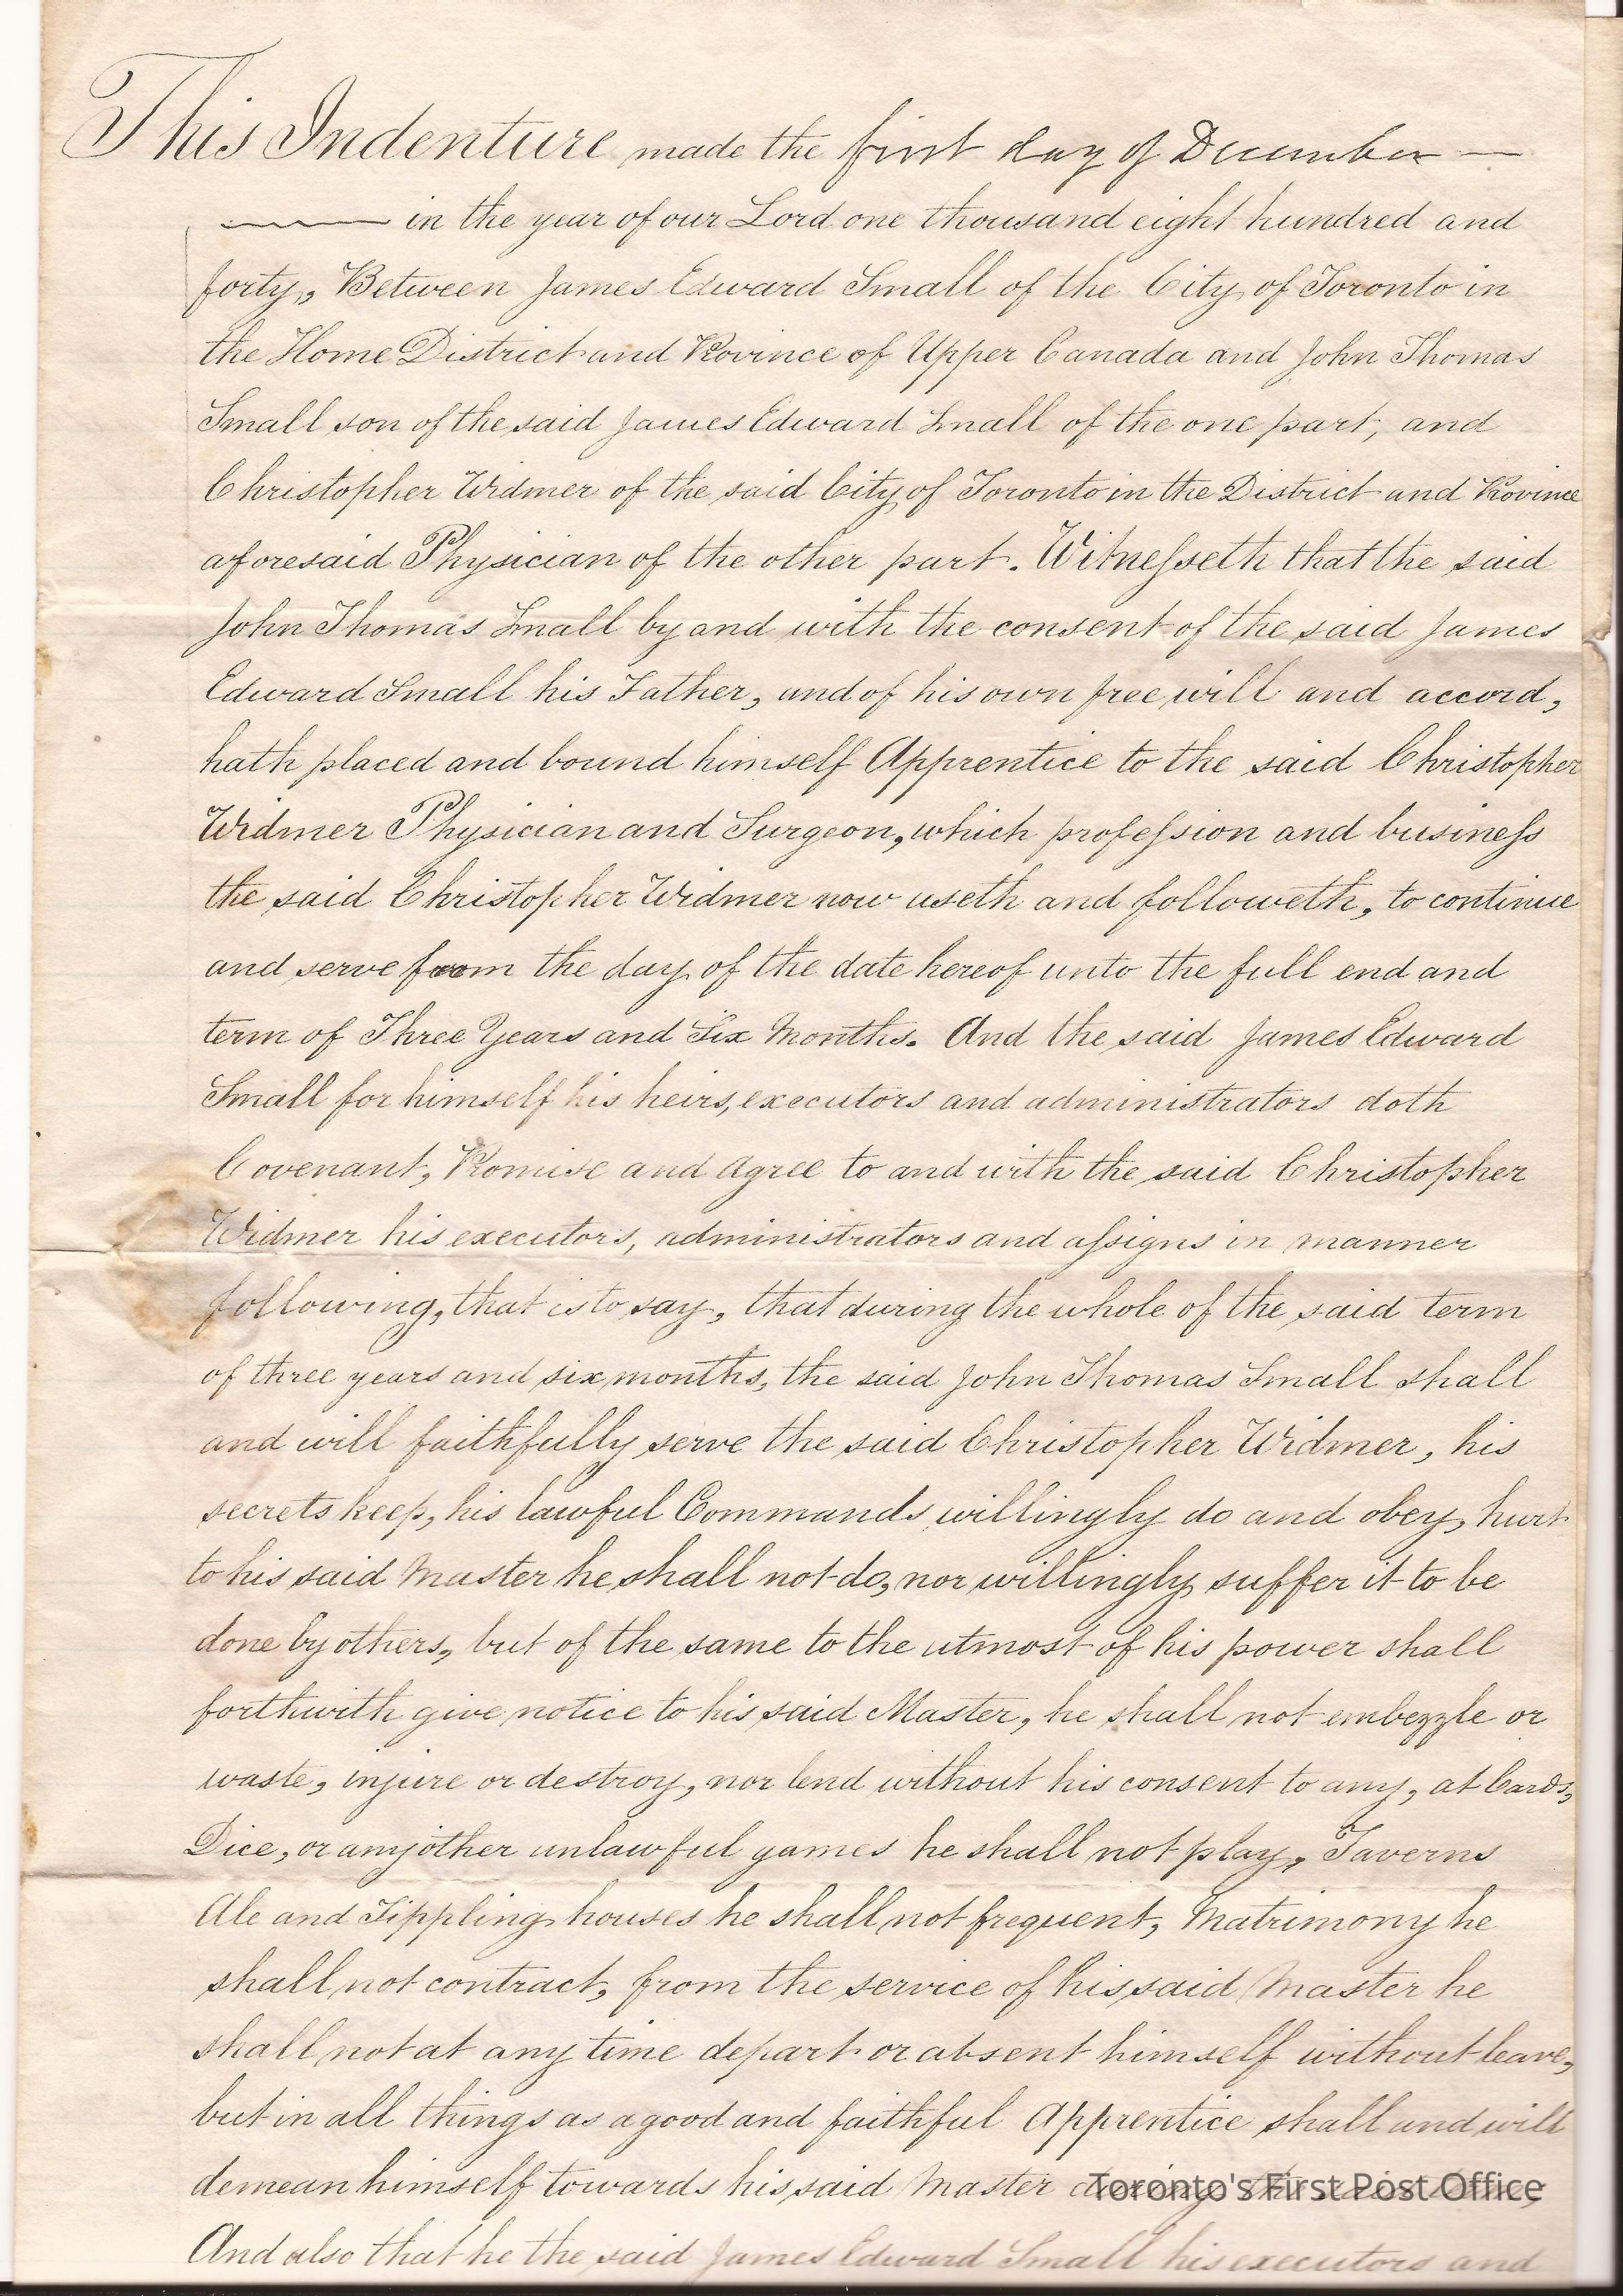 This Indenture made the first day of December —
— in the year of our Lord one thousand eight hundred and
forty, Between James Edward Small of the City of Toronto in
the Home District and Province of Upper Canada and John Thomas
Small son of the said James Edward Small of the one part, and
Christopher Widmer of the said City of Toronto in the District and Province
aforesaid Physician of the other part. Witnesseth that the said
John Thomas Small by and with the consent of the said James
Edward Small his Father, and of his own free will and accord,
hath placed and bound himself Apprentice to the said Christopher
Widmer Physician and Surgeon, which profession and business
the said Christopher Widmer now useth and followeth, to continue
and serve from the day of the date hereof unto the full end and
term of Three Years and Six Months. And the said James Edward
Small for himself his heirs, executors and administrators doth
Covenant, Promise and Agree to and with the said Christopher
Widmer his executors, administrators and assigns in manner
following, that is to say, that during the whole of the said term
of three years and six months, the said John Thomas Small shall
and will faithfully serve the said Christopher Widmer, his
secrets keep, his lawful Commands willingly do and obey, hurt
to his said Master he shall not do, nor willingly suffer it to be
done by others, but of the same to the utmost of his power shall
forthwith give notice to his said Master, he shall not embezzle or
waste, injure or destroy, nor lend without his consent to any, at Cards,
Dice, or any other unlawful games he shall not play, Taverns
Ale and Tippling houses he shall not frequent, Matrimony he
shall not contract, from the service of his said Master he
shall not at any time depart or absent himself without leave,
but in all things as a good and faithful Apprentice shall and will
demean himself towards his said Master
Toronto's First Post Office
And also that he the said James Edward Small his executors and